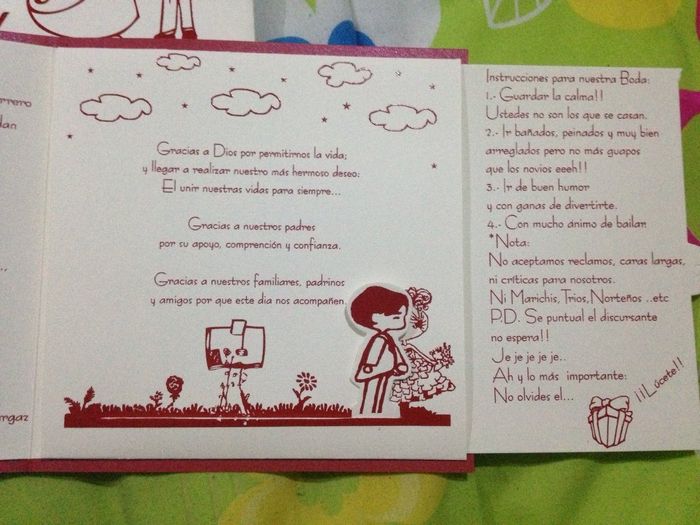 rrero
dan
rngaz
Gracias a Dios por permitirnos la vida;
y llegar a realizar nuestro más hermoso deseo:
El unir nuestras vidas para siempre...
Gracias a nuestros padres
por su apoyo, comprención y confianza.
Gracias a nuestros familiares, padrinos
y amigos por que este dia nos acompañen.
Instrucciones para nuestra Boda:
1.- Guardar la calma!!
Ustedes no son los que se casan.
2.- Ir bañados, peinados y muy bien
arreglados pero no más guapos
que los novios eeeh!!
3.- Ir de buen humor
y con ganas de divertirte.
4.- Con mucho ánimo de bailar.
*Nota:
No aceptamos reclamos, caras largas,
ni críticas para nosotros.
Ni Marichis, Trios, Norteños ..etc
P.D. Se puntual el discursante
no espera!!
Je je je je je..
Ah y lo más importante:
No olvides el...
¡¡¡Lúcete!!